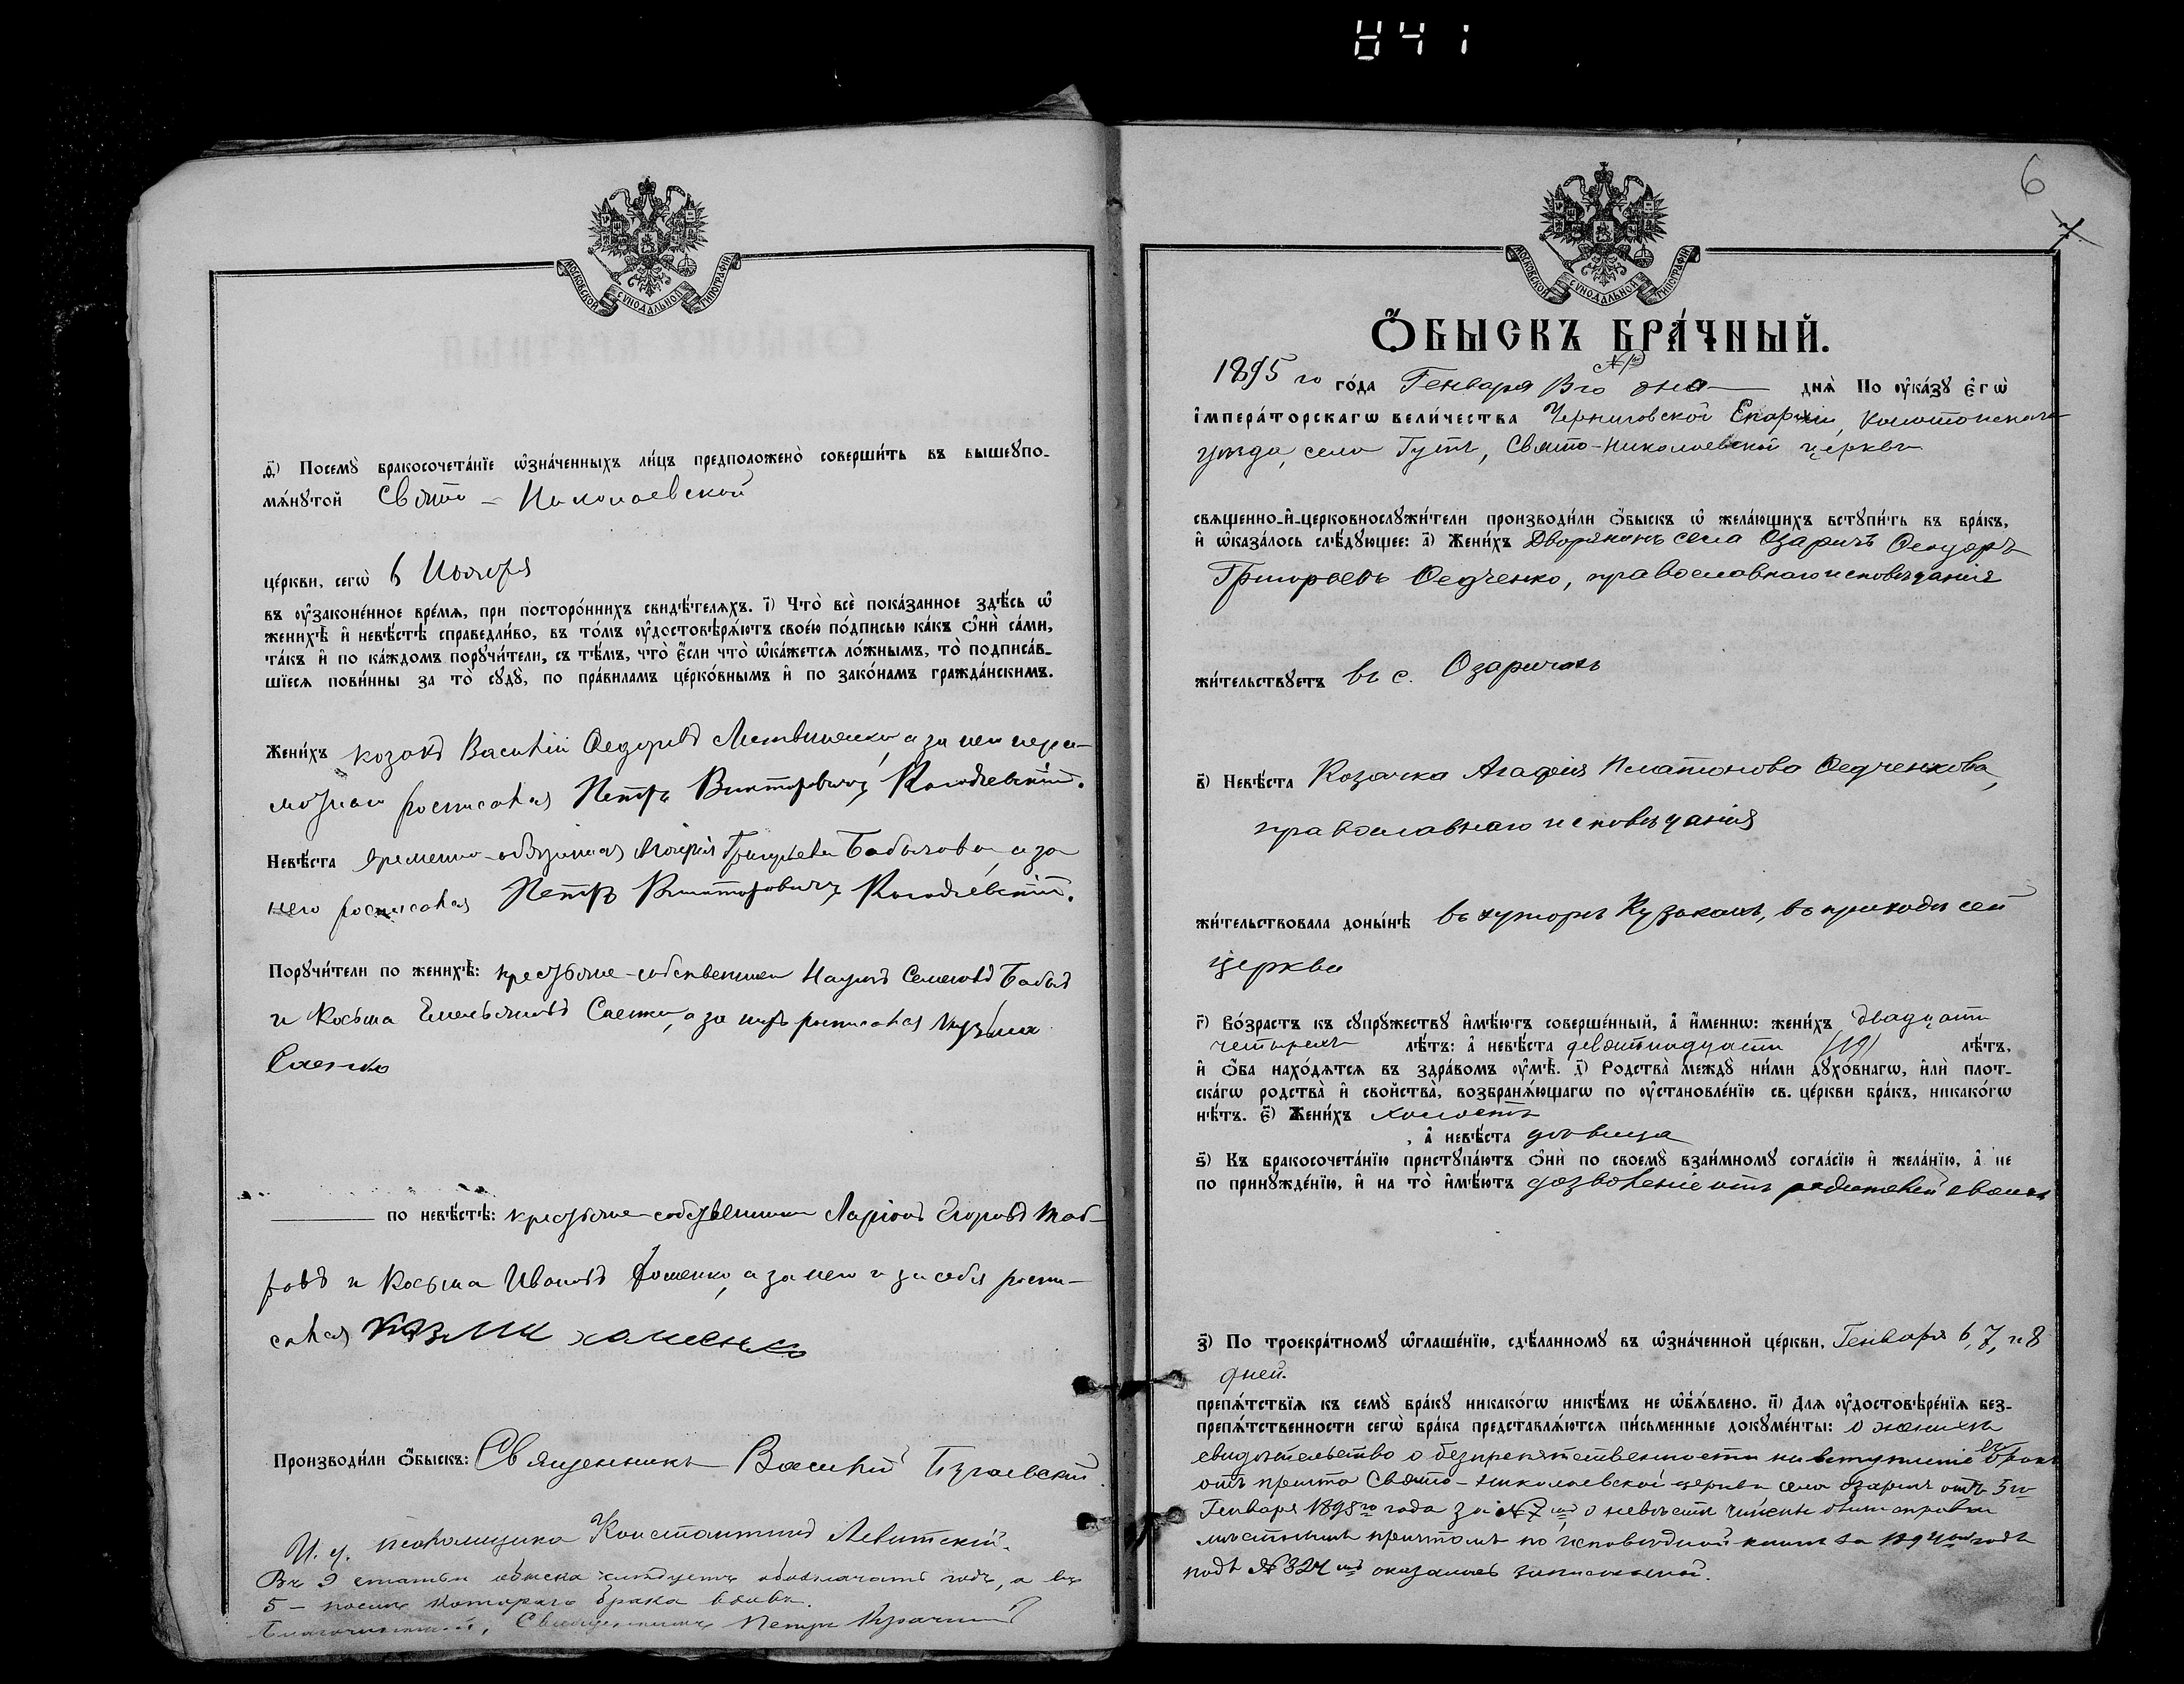 МОСКОВСКОЙ СУНОДАЛЬНОЙ ТИПОГРАФІИ
ѳ҃) Посемꙋ̀ бракосочета́нїе ѡ҆зна́ченныхъ ли́цъ предположено̀ соверши́ть въ вышеꙋпо-
мѧ́нꙋтой Свято - Николаевской
це́ркви, сегѡ̀ 6 Ноября
въ ᲂу҆зако́ненное вре́мѧ, при посторо́ннихъ свидѣ́телѧхъ. і҃) Что̀ всѐ пока́занное здѣ́сь ѡ҆
женихѣ̀ и҆ невѣ́стѣ справедли́во, въ то́мъ ᲂу҆достовѣрѧ́ютъ свое́ю по́дписью ка́къ ѻ҆нѝ са́ми,
та́къ и҆ по ка́ждомъ порꙋчи́тели, съ тѣ́мъ, что̀ є҆́сли что̀ ѡ҆ка́жетсѧ ло́жнымъ, то̀ подписа́в-
шїесѧ пови́нны за то̀ сꙋдꙋ̀, по пра́виламъ церко́внымъ и҆ по зако́намъ гражда́нскимъ.
Жени́хъ козакъ Василій Федоровъ Литвиненко, а за него негра-
мотнаго росписался Петръ Викторовичъ Колодчевскій.
Невѣ́ста временно-обязанная Марія Григорьева Бабичова, а за
него росписался Петръ Викторовичъ Колодчевскій.
Порꙋчи́тели по женихѣ̀: крестьяне-собственники Наумъ Семеновъ
и Косьма Емельяновъ Саенко, а за нихъ росписался Кузьма
Саенко
по невѣ́стѣ: крестьяне-собственники Ларіонъ Егоровъ
и Косьма Ивановъ Хоменко, а за него и за себя роспи-
сался
Производи́ли ѻ҆́быскъ: Священникъ Василій Бугаевскій
И. д. псаломщика Константинъ Левитскій.
Въ 9 статьи обыска слѣдуетъ обозначать годъ, а въ
5 - послѣ котораго брака вдовъ.
Благочинный, Священникъ Петръ
6
МОСКОВСКОЙ СУНОДАЛЬНОЙ ТИПОГРАФІИ
Ѻ҆́БЫСКЪ БРА́ЧНЫЙ.
1895 го го́да Генваря 8го дня днѧ̀ По ᲂу҆ка́зꙋ є҆гѡ̀
і҆мпера́торскагѡ вели́чества Черниговской Епархіи, Конотопскаго
уѣзда, села Гуты, Свято-Николаевской церкви
свѧщенно-и҆-церковнослꙋжи́тели производи́ли ѻ҆́быскъ ѡ҆ жела́ющихъ встꙋпи́ть въ бра́къ,
и҆ ѡ҆каза́лось слѣ́дꙋющее: а҃) Жени́хъ Дворянинъ села Озаричъ Феодоръ
Григорьевъ Федченко, православнаго исповѣданія
жи́тельствꙋетъ въ с. Озаричахъ
в҃) Невѣ́ста Козачка Агафія Платонова Федченкова,
православнаго исповѣданія
жи́тельствовала доны́нѣ въ хуторѣ Кузакахъ, въ приходѣ сей
церкви
г҃) Во́зрастъ къ сꙋпрꙋ́жествꙋ и҆мѣ́ютъ соверше́нный, а҆ и҆́меннѡ: жени́хъ двадцати
четырехъ лѣ́тъ: а҆ невѣ́ста девятнадцати (19) лѣ́тъ,
и҆ ѻ҆́ба нахо́дѧтсѧ въ здра́вомъ ᲂу҆мѣ̀. д҃) Родства̀ междꙋ̀ ни́ми дꙋхо́внагѡ, и҆лѝ плот-
ска́гѡ родства̀ и҆ свойства̀, возбранѧ́ющагѡ по ᲂу҆становле́нїю св. це́ркви бра́къ, никако́гѡ
нѣ́тъ. є҃) Жени́хъ холостъ
, а҆ невѣ́ста дѣвица
ѕ҃) Къ бракосочета́нїю пристꙋпа́ютъ ѻ҆нѝ по своемꙋ̀ взаи́мномꙋ согла́сїю и҆ жела́нїю, а҆ не
по принꙋжде́нїю, и҆ на то̀ и҆мѣ́ютъ дозволеніе отъ родителей своихъ
з҃) По троекра́тномꙋ ѡ҆глаше́нїю, сдѣ́ланномꙋ въ ѡ҆зна́ченной це́ркви, Генваря 6, 7, и 8
дней.
препѧ́тствїѧ къ семꙋ̀ бра́кꙋ никако́гѡ никѣ́мъ не ѡ҆б̾ѧ́влено. и҃) Длѧ ᲂу҆достовѣре́нїѧ без-
препѧ́тственности сегѡ̀ бра́ка представлѧ́ютсѧ пи́сьменные докꙋме́нты: о женихѣ
свидѣтельство о безпрепятственности на вступленіе въ бракъ
отъ причта Свято-Николаевской церкви села Озаричъ отъ 5го
Генваря 1895го года за № 7 о невѣстѣ
мѣстнымъ причтомъ по исповѣдной книгѣ за 1894 годъ
подъ № 324 оказалась записанной.